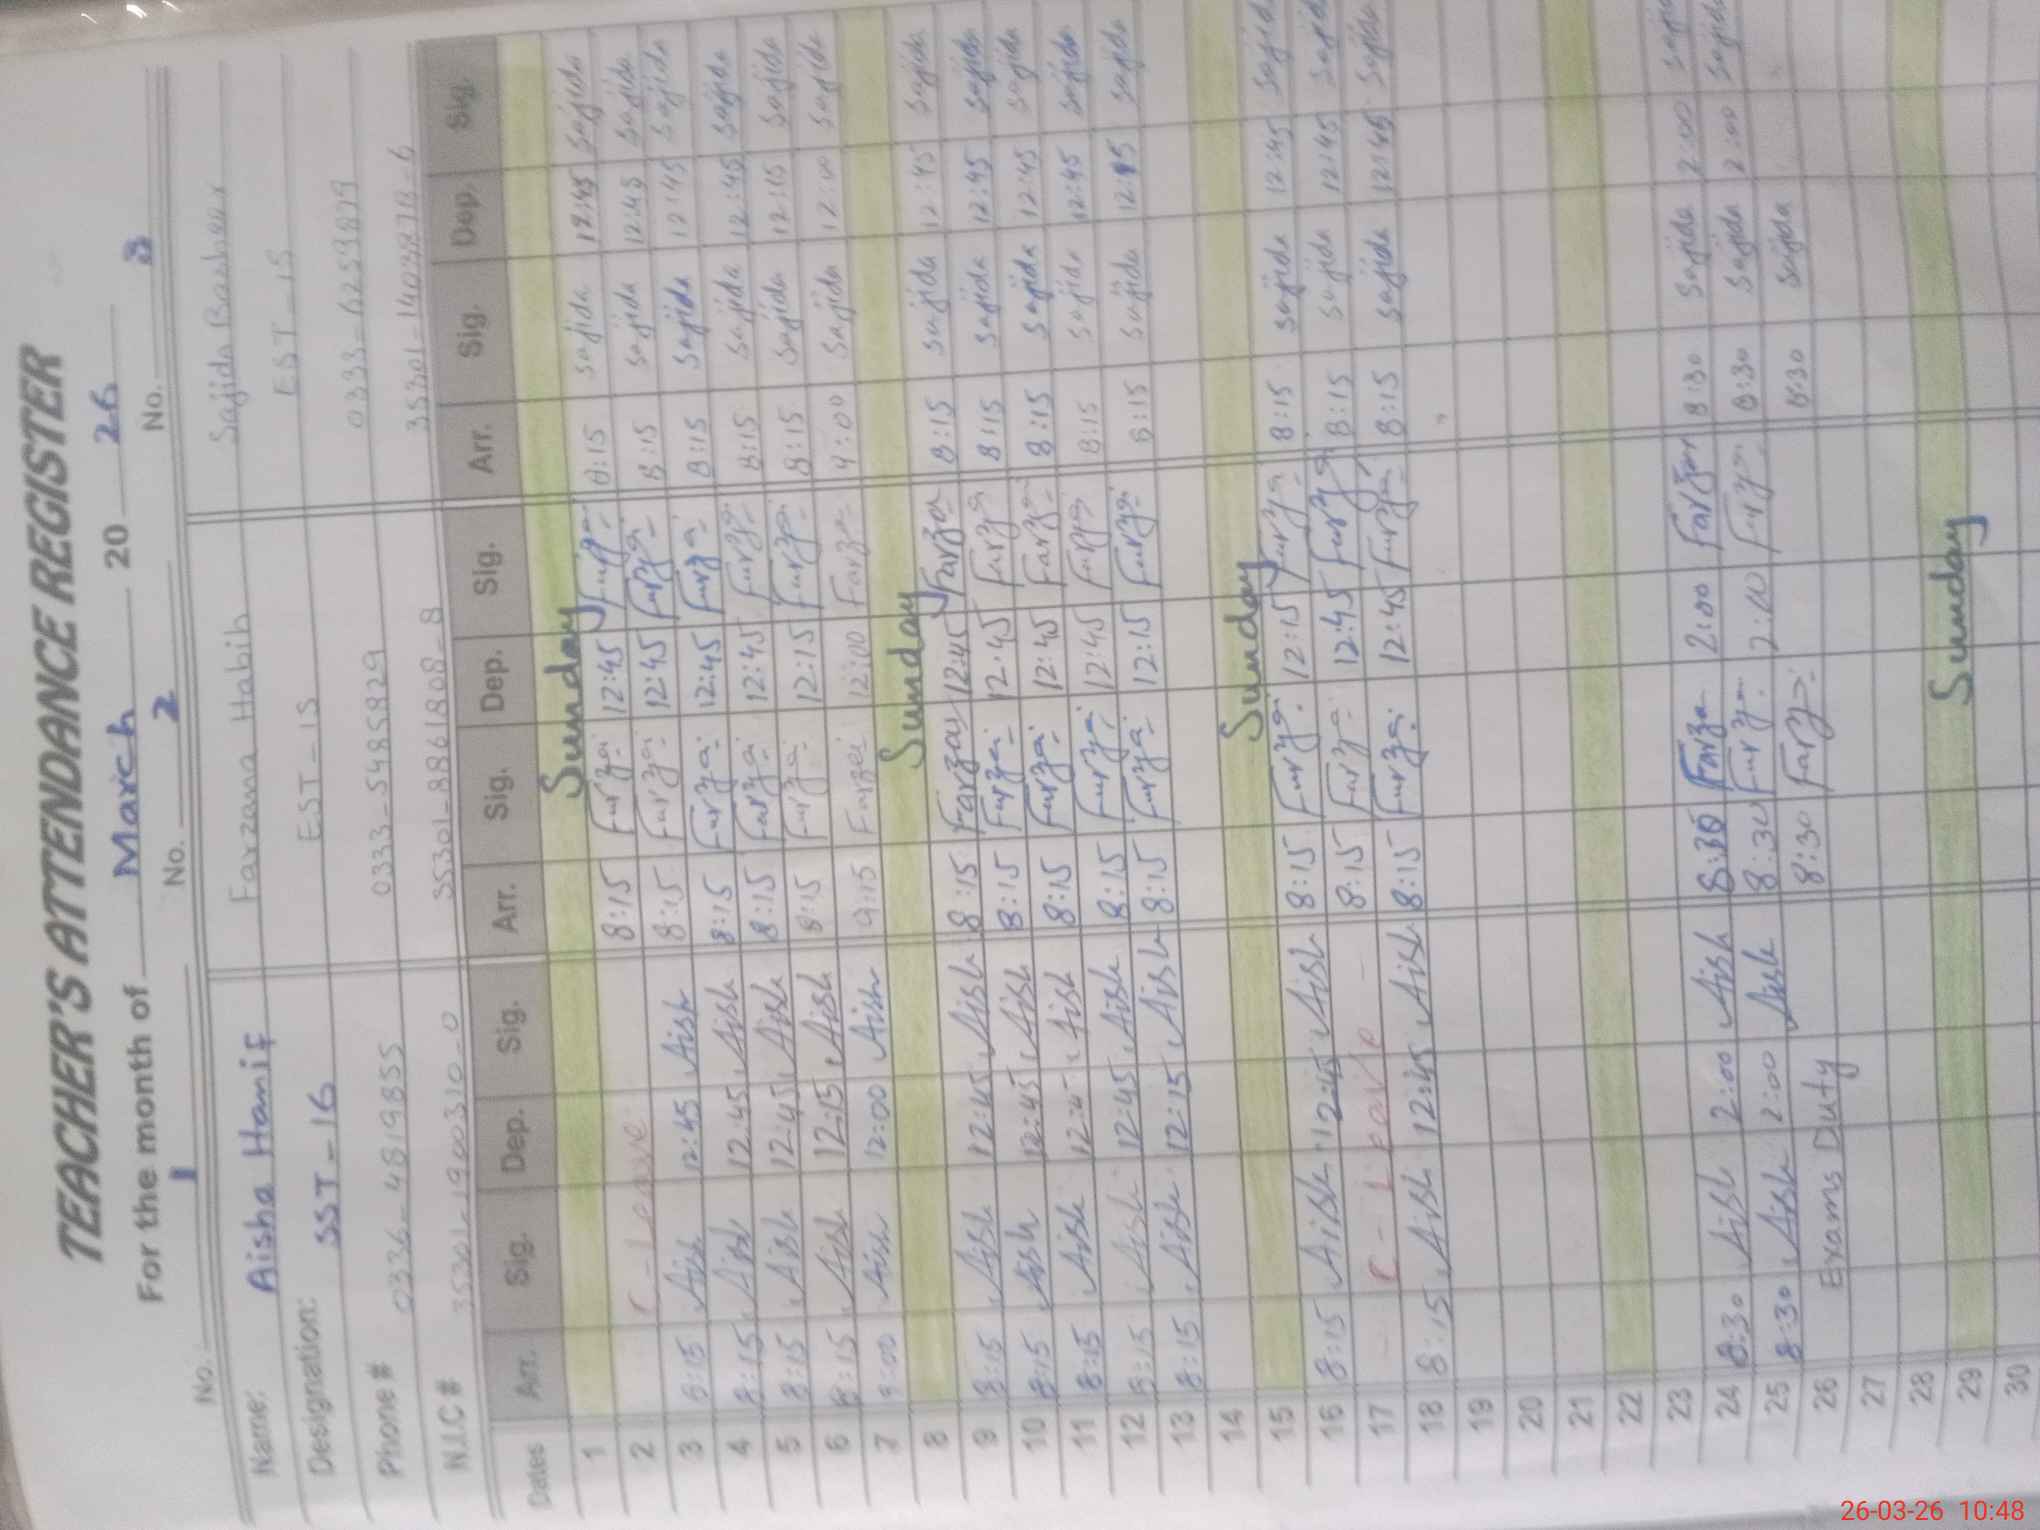 TEACHER'S ATTENDANCE REGISTER
For the month of March 20 26
No. 1 No. 2 No. 3
Name: Aisha Hanif Farzana Habib Sajida Basheer
Designation: SST-16 EST-15 EST-15
Phone # 0336-4819855 0333-5485829
N.I.C # 35301-1900310-0 35301-8861808-8
Dates Arr. Sig. Dep. Sig. Arr. Sig. Dep. Sig. Arr. Sig. Dep. Sig.
1 Sunday
2 C-Leave 8:15 Farza 12:45 Farza 8:15 Sajida 12:45 Sajida
3 8:15 Aish 12:45 Aish 8:15 Farza 12:45 Farza 8:15 Sajida 12:45 Sajida
4 8:15 Aish 12:45 Aish 8:15 Farza 12:45 Farza 8:15 Sajida 12:45 Sajida
5 8:15 Aish 12:45 Aish 8:15 Farza 12:45 Farza 8:15 Sajida 12:45 Sajida
6 8:15 Aish 12:15 Aish 8:15 Farza 12:15 Farza 8:15 Sajida 12:15 Sajida
7 9:00 Aish 12:00 Aish 9:15 Farza 12:00 Farza 9:00 Sajida 12:00 Sajida
8 Sunday
9 8:15 Aish 12:45 Aish 8:15 Farza 12:45 Farza 8:15 Sajida 12:45 Sajida
10 8:15 Aish 12:45 Aish 8:15 Farza 12:45 Farza 8:15 Sajida 12:45 Sajida
11 8:15 Aish 12:45 Aish 8:15 Farza 12:45 Farza 8:15 Sajida 12:45 Sajida
12 8:15 Aish 12:45 Aish 8:15 Farza 12:45 Farza 8:15 Sajida 12:45 Sajida
13 8:15 Aish 12:15 Aish 8:15 Farza 12:15 Farza 8:15 Sajida 12:15 Sajida
14
15 Sunday
16 8:15 Aish 12:45 Aish 8:15 Farza 12:15 Farza 8:15 Sajida 12:45 Sajida
17 C-Leave 8:15 Farza 12:45 Farza 8:15 Sajida 12:45 Sajida
18 8:15 Aish 12:45 Aish 8:15 Farza 12:45 Farza 8:15 Sajida 12:45 Sajida
19
20
21
22
23
24 8:30 Aish 2:00 Aish 8:30 Farza 2:00 Farza 8:30 Sajida 2:00 Sajida
25 8:30 Aish 2:00 Aish 8:30 Farza 2:00 Farza 8:30 Sajida 2:00 Sajida
26 Exams Duty 8:30 Farza 8:30 Sajida
27
28
29 Sunday
30
26-03-26 10:48